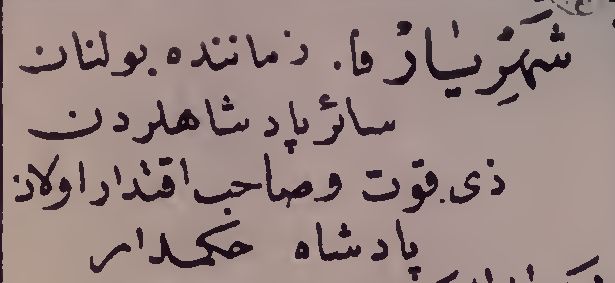 شَهْرِيَارْ فا. زماننده بولنان
سائر پادشاهلردن
ذی قوت وصاحب اقتدار اولان
پادشاه حکمدار